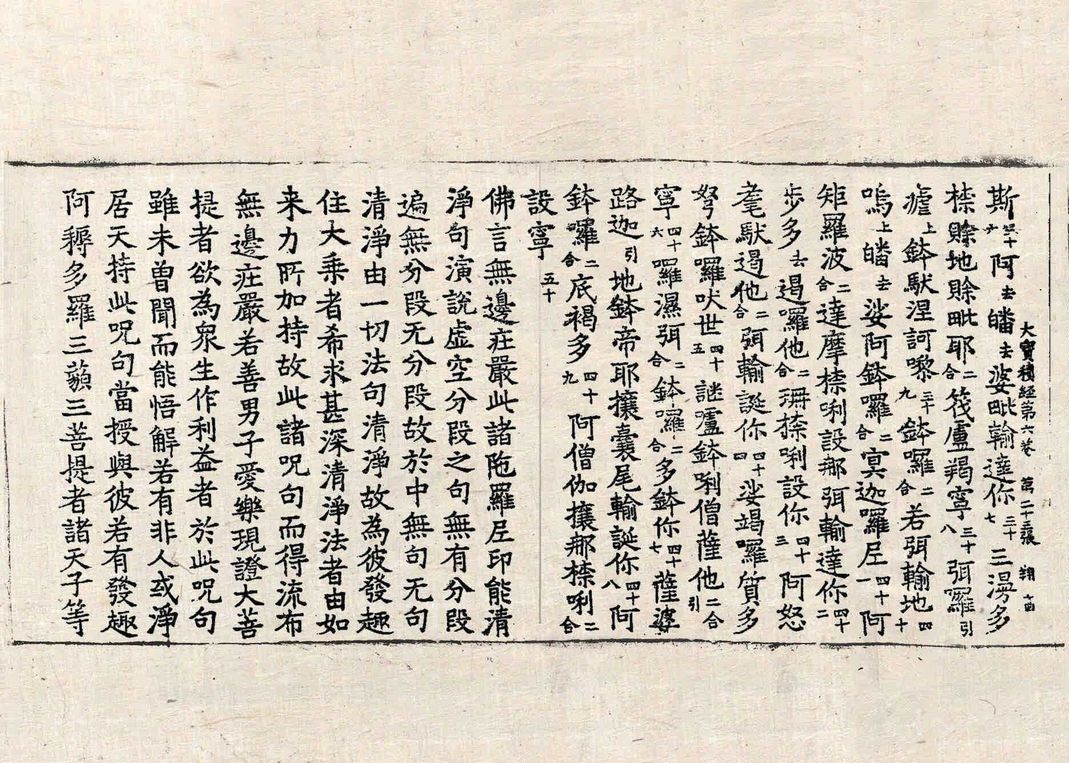 大寶積經第六卷 萬二十三張 翔字
斯三十六阿去皤去娑毗輸達你三十七三漫多
㮈賒地賒毗耶二合筏盧羯寧三十八弭囉引
瘧上鉢馱涅訶嚟三十九鉢囉二合若弭輸地四十
嗚上皤去娑阿鉢囉二合寅迦囉尼四十一阿
矩羅波二合達摩㮈唎設那弭輸達你四十二
步多去遏囉他二合珊㮈唎設你四十三阿怒
耄馱遏他二合弭輸誕你四十四娑竭囉質多
弩鉢囉吠世四十五謎嚧鉢唎僧薩他二合引
寧四十六囉濕弭二合鉢囉二合多鉢你四十七薩婆
路迦引地鉢帝耶攘囊尾輸誕你四十八阿
鉢囉二合底褐多四十九阿僧伽攘那㮈唎二合
設寧五十
佛言無邊莊嚴此諸陁羅尼印能清
淨句演說虛空分段之句無有分段
遍無分段无分段故於中無句无句
清淨由一切法句清淨故為彼發趣
住大乘者希求甚深清淨法者由如
来力所加持故此諸呪句而得流布
無邊莊嚴若善男子愛樂現證大菩
提者欲為衆生作利益者於此呪句
雖未曾聞而能悟解若有非人或淨
居天持此呪句當授與彼若有發趣
阿耨多羅三藐三菩提者諸天子等